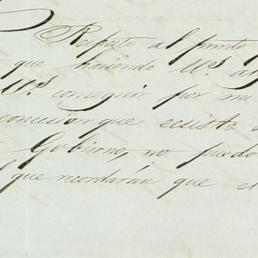 Respecto al punto
que haciendo Us.
Us. conseguir por mi
concesion que existe
Gobierno, no puedo
que recordarán que el